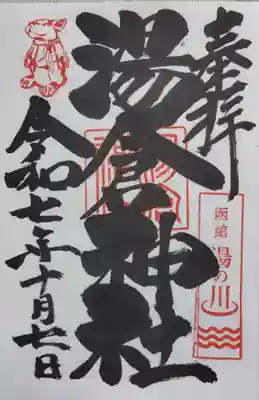 奉拝
函館
湯の川
湯倉神社
令和七年十月七日